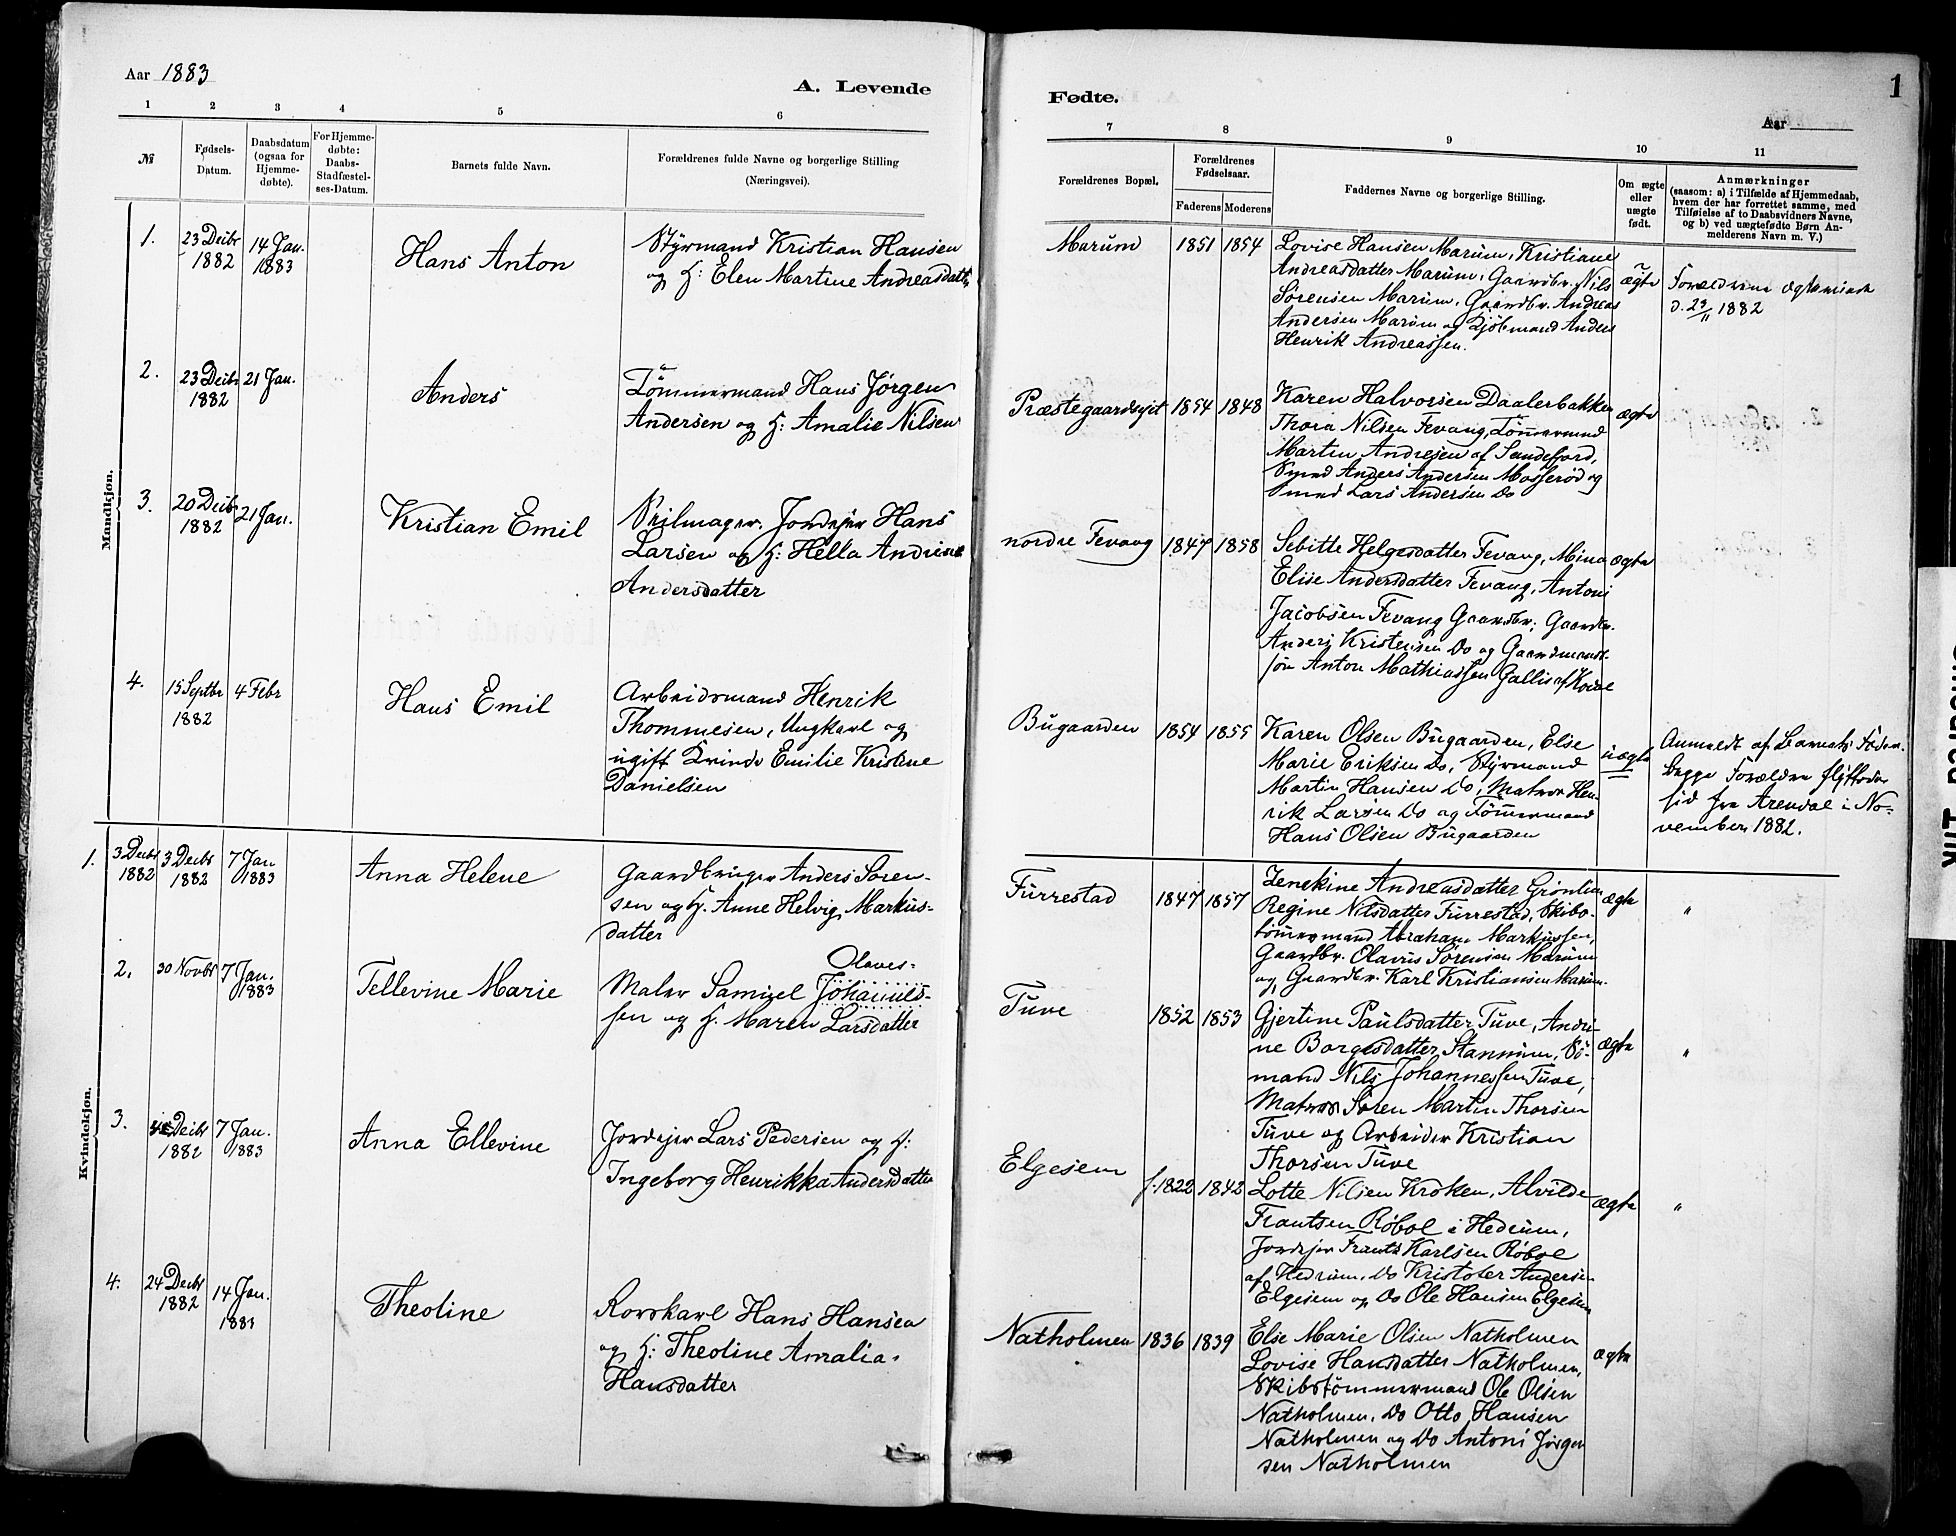 Aar 1883
A. Levende
1 2 3 4 5 6
№
Fødsels-
Datum.
Daabsdatum
(ogsaa for
Hjemme-
døbte).
For Hjemme-
døbte:
Daabs-
Stadfæstel-
ses-Datum.
Barnets fulde Navn.
Forældrenes fulde Navne og borgerlige Stilling
(Næringsvei).
Mandkjøn.
1.
23 Decbr
1882
14 Jan.
1883
Hans Anton
Styrmand Kristian Hansen
og H: Elen Martine Andreasdatt.
2.
23 Decbr
1882
21 Jan.
Anders
Tømmermand Hans Jørgen
Andersen og H: Amalie Nilsen
3.
20 Decbr
1882
21 Jan.
Kristian Emil
Seilmager, Jordejer Hans
Larsen og H: Hella Andrine
Andersdatter
4.
15 Septbr
1882
4 Febr
Hans Emil
Arbeidsmand Henrik
Thommesen, Ungkarl og
ugift Kvinde Emilie Kristine
Danielsen
Kvindekjøn.
1.
3 Decbr
1882
3 Decbr
1882
7 Jan
1883
Anna Helene
Gaardbruger Anders Søren-
sen og H. Anne Helvig Markus-
datter
2.
30 Novbr
7 Jan.
1883
Tellevine Marie
Olaves-
Maler Samuel Johannes-
sen og H. Maren Larsdatter
3.
Decbr
1882
7 Jan.
1883
Anna Ellevine
Jordejer Lars Pedersen og H:
Ingeborg Henrikka Andersdatter
4.
24 Decbr
1882
14 Jan.
1883
Theoline
Rorskarl Hans Hansen
og H: Theoline Amalia
Hansdatter
Fødte.
1
Aar
7 8 9 10 11
Forældrenes Bopæl.
Forældrenes
Fødselsaar.
Faderens Moderens
Faddernes Navne og borgerlige Stilling.
Om ægte
eller
uægte
født.
Anmærkninger
(saasom: a) i Tilfælde af Hjemmedaab,
hvem der har forrettet samme, med
Tilføielse af to Daabsvidners Navne,
og b) ved uægtefødte Børn An-
melderens Navn m. V.)
Marum
1851 1854
Lovise Hansen Marum, Kristiane
Andreasdatter Marum, Gaardbr. Nils
Sørensen Marum, Gaardbr. Andreas
Andersen Marum og Kjøbmand Anders
Henrik Andreassen.
ægte
Forældrene ægteviede
d. 23/11 1882
Præstegaardsejet
1854 1848
Karen Halvorsen Daalerbakken
Thora Nilsen Fevang, Tømmermand
Martin Andresen af Sandefjord,
Smed Anders Andersen Mosserød og
Smed Lars Andersen Do
ægte
nordre Fevang
1847 1858
Sebitte Helgesdatter Fevang, Mina
Elise Andersdatter Fevang, Antoni
Jacobsen Fevang Gaardbr., Gaardbr.
Anders Kristensen Do og Gaardmands-
søn Anton Mathiassen Gallis af Kodal
ægte
Bugaarden
1854 1855
Karen Olsen Bugaarden, Elise
Marie Eriksen Do, Styrmand
Martin Hansen Do, Matros Hen-
rik Larsen Do og Tømmermand
Hans Olsen Bugaarden
uægte
Anmeldt af Barnets Fader.
Begge Forældre flyttede
hid fra Arendal i No-
vember 1882.
Furrestad
1847 1857
Zenekine Andreasdatter Grønlien
Regine Nilsdatter Furrestad, Skibs-
tømmermand Abraham Markussen,
Gaardbr. Olavus Sørensen Marum
og Gaardbr. Karl Kristiansen Marum.
ægte
"
Tuve
1852 1853
Gjertine Paulsdatter Tuve, Andri-
ne Borgesdatter Stannum, Sø-
mand Nils Johannessen Tuve,
Matros Søren Martin Thorsen
Tuve og Arbeider Kristian
Thorsen Tuve
ægte
"
Elgesem
f. 1822 1842
Lotte Nilsen Kroken, Alvilde
Frantsen Røbol i Hedrum,
Jordejer Frants Karlsen Røbol
af Hedrum, Do Kristofer Andersen
Elgesem og Do Ole Hansen Elgesem
ægte
"
Natholmen
1836 1839
Else Marie Olsen Natholmen
Lovise Hansdatter Natholmen,
Skibstømmermand Ole Olsen
Natholmen, Do Otto Hansen
Natholmen og Do Antoni Jørgen-
sen Natholmen
ægte